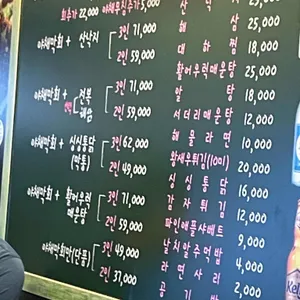 회추가 22,000 야채무침추가 5,000
야채막회 + 산낙지 3인 71,000
2인 59,000
야채막회 + 전복 3인 71,000
해삼 2인 59,000
야채막회 + 싱싱통닭 3인 62,000
(막통) 2인 49,000
야채막회 + 활어우럭 3인 71,000
매운탕 2인 59,000
야채막회만(단품) 3인 49,000
2인 37,000
25,000
해삼 25,000
대하찜 18,000
활어우럭매운탕 25,000
알탕 18,000
서더리매운탕 12,000
해물라면 10,000
황새우튀김(10미) 20,000
싱싱통닭 16,000
감자튀김 12,000
파인애플샤베트 9,000
날치알주먹밥 4,000
라면사리 2,000
공기밥